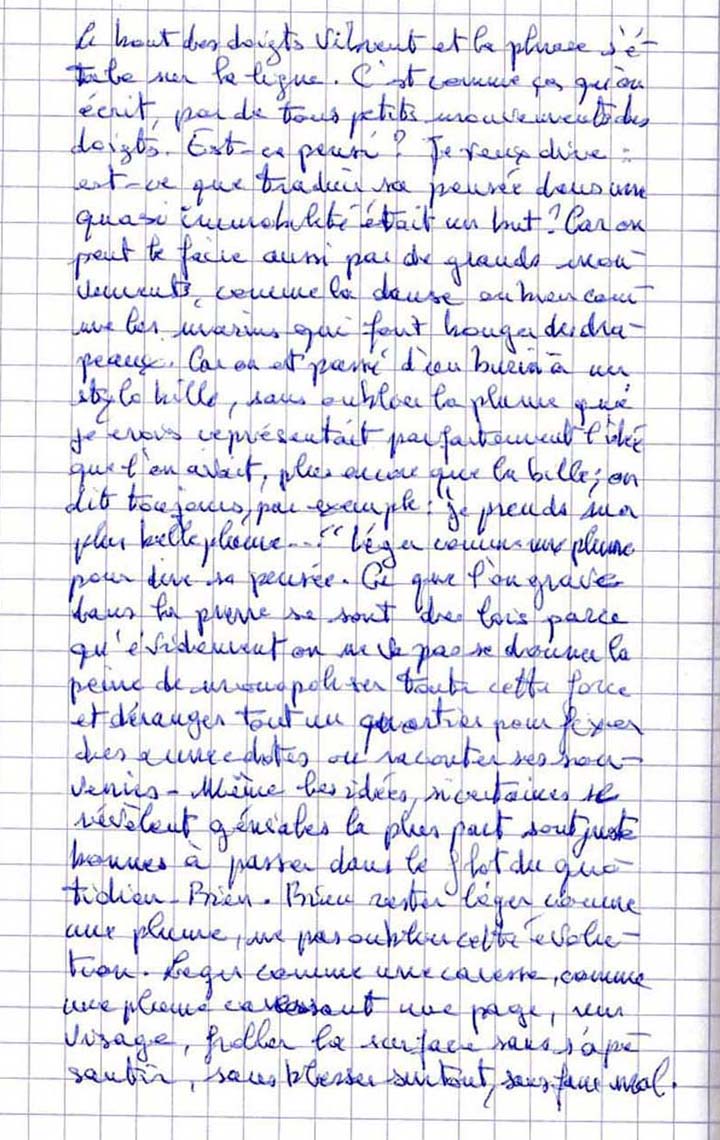 Le bout des doigts vibrent et la phrase s'é-
tale sur la ligne. C'est comme ça qu'on
écrit, par de tous petits mouvements des
doigts. Est-ce pensé ? Je veux dire :
est-ce que traduire sa pensée dans une
quasi immobilité était un but ? Car on
peut le faire aussi par de grands mou-
vements, comme la danse ou bien com-
me les marins qui font bouger des dra-
peaux. Car on est passé d'un burin à un
stylo bille, sans oublier la plume qui
je crois représentait parfaitement l'idée
que l'on avait, plus encore que la bille ; on
dit toujours, par exemple : "je prends ma
plus belle plume..." Léger comme une plume
pour dire sa pensée. Ce que l'on grave
dans la pierre se sont des lois parce
qu'évidement on ne va pas se donner la
peine de monopoliser toute cette force
et déranger tout un quartier pour fixer
des annecdotes ou raconter ses sou-
venirs - Même les idées, si certaines se
révèlent géniales la plus part sont juste
bonnes à passer dans le flot du quo-
tidien - Bien. Bien rester léger comme
une plume, ne pas oublier cette évolu-
tion. Léger comme une caresse, comme
une plume caressant une page, un
visage, frôller la surface sans s'apé
santir, sans blesser surtout, sans faire mal.